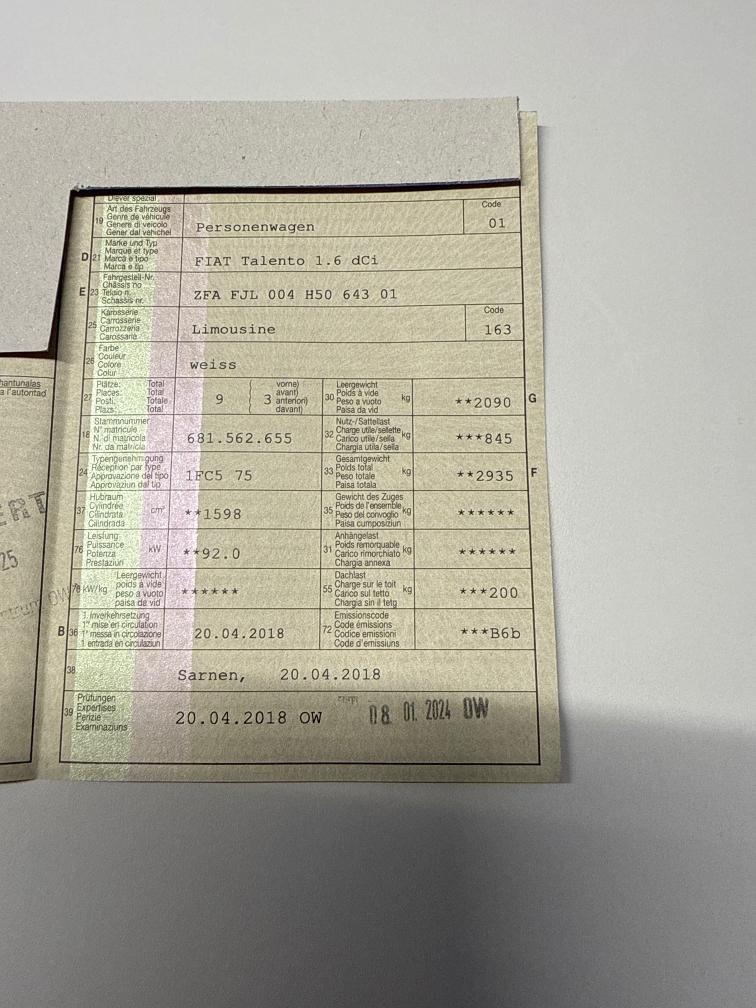 Diever spezial
19 Art des Fahrzeugs
Genre de véhicule
Genere di veicolo
Gener dal vehichel
Personenwagen
Code
01
D 21 Marke und Typ
Marque et type
Marca e tipo
Marca e tip
FIAT Talento 1.6 dCi
E 23 Fahrgestell-Nr.
Châssis no
Telaio n.
Schassis nr.
ZFA FJL 004 H50 643 01
25 Karosserie
Carrosserie
Carrozzeria
Carossaria
Limousine
Code
163
26 Farbe
Couleur
Colore
Colur
weiss
27 Plätze: Total
Places: Total
Posti: Totale
Plazs: Total
9 ( 3 vorne)
avant)
anteriori)
davant)
30 Leergewicht
Poids à vide
Peso a vuoto
Paisa da vid
kg
**2090 G
18 Stammnummer
N° matricule
N. di matricola
Nr. da matricla
681.562.655
32 Nutz-/Sattellast
Charge utile/sellette
Carico utile/sella
Chargia utila/sella
kg
***845
24 Typengenehmigung
Réception par type
Approvazione del tipo
Approvaziun dal tip
1FC5 75
33 Gesamtgewicht
Poids total
Peso totale
Paisa totala
kg
**2935 F
37 Hubraum
Cylindrée
Cilindrata
Cilindrada
cm³
**1598
35 Gewicht des Zuges
Poids de l'ensemble
Peso del convoglio
Paisa cumposiziun
kg
******
76 Leistung
Puissance
Potenza
Prestaziun
kW
**92.0
31 Anhängelast
Poids remorquable
Carico rimorchiato
Chargia annexa
kg
******
78 kW/kg
Leergewicht
poids à vide
peso a vuoto
paisa da vid
******
55 Dachlast
Charge sur le toit
Carico sul tetto
Chargia sin il tetg
kg
***200
B 36 1. Inverkehrsetzung
1re mise en circulation
1a messa in circolazione
1. entrada en circulaziun
20.04.2018
72 Emissionscode
Code émissions
Codice emissioni
Code d'emissiuns
***B6b
38 Sarnen, 20.04.2018
39 Prüfungen
Expertises
Perizie
Examinaziuns
20.04.2018 OW
08. 01. 2024 OW
hantunalas
a l'autoritad
ERT
25
trum OW